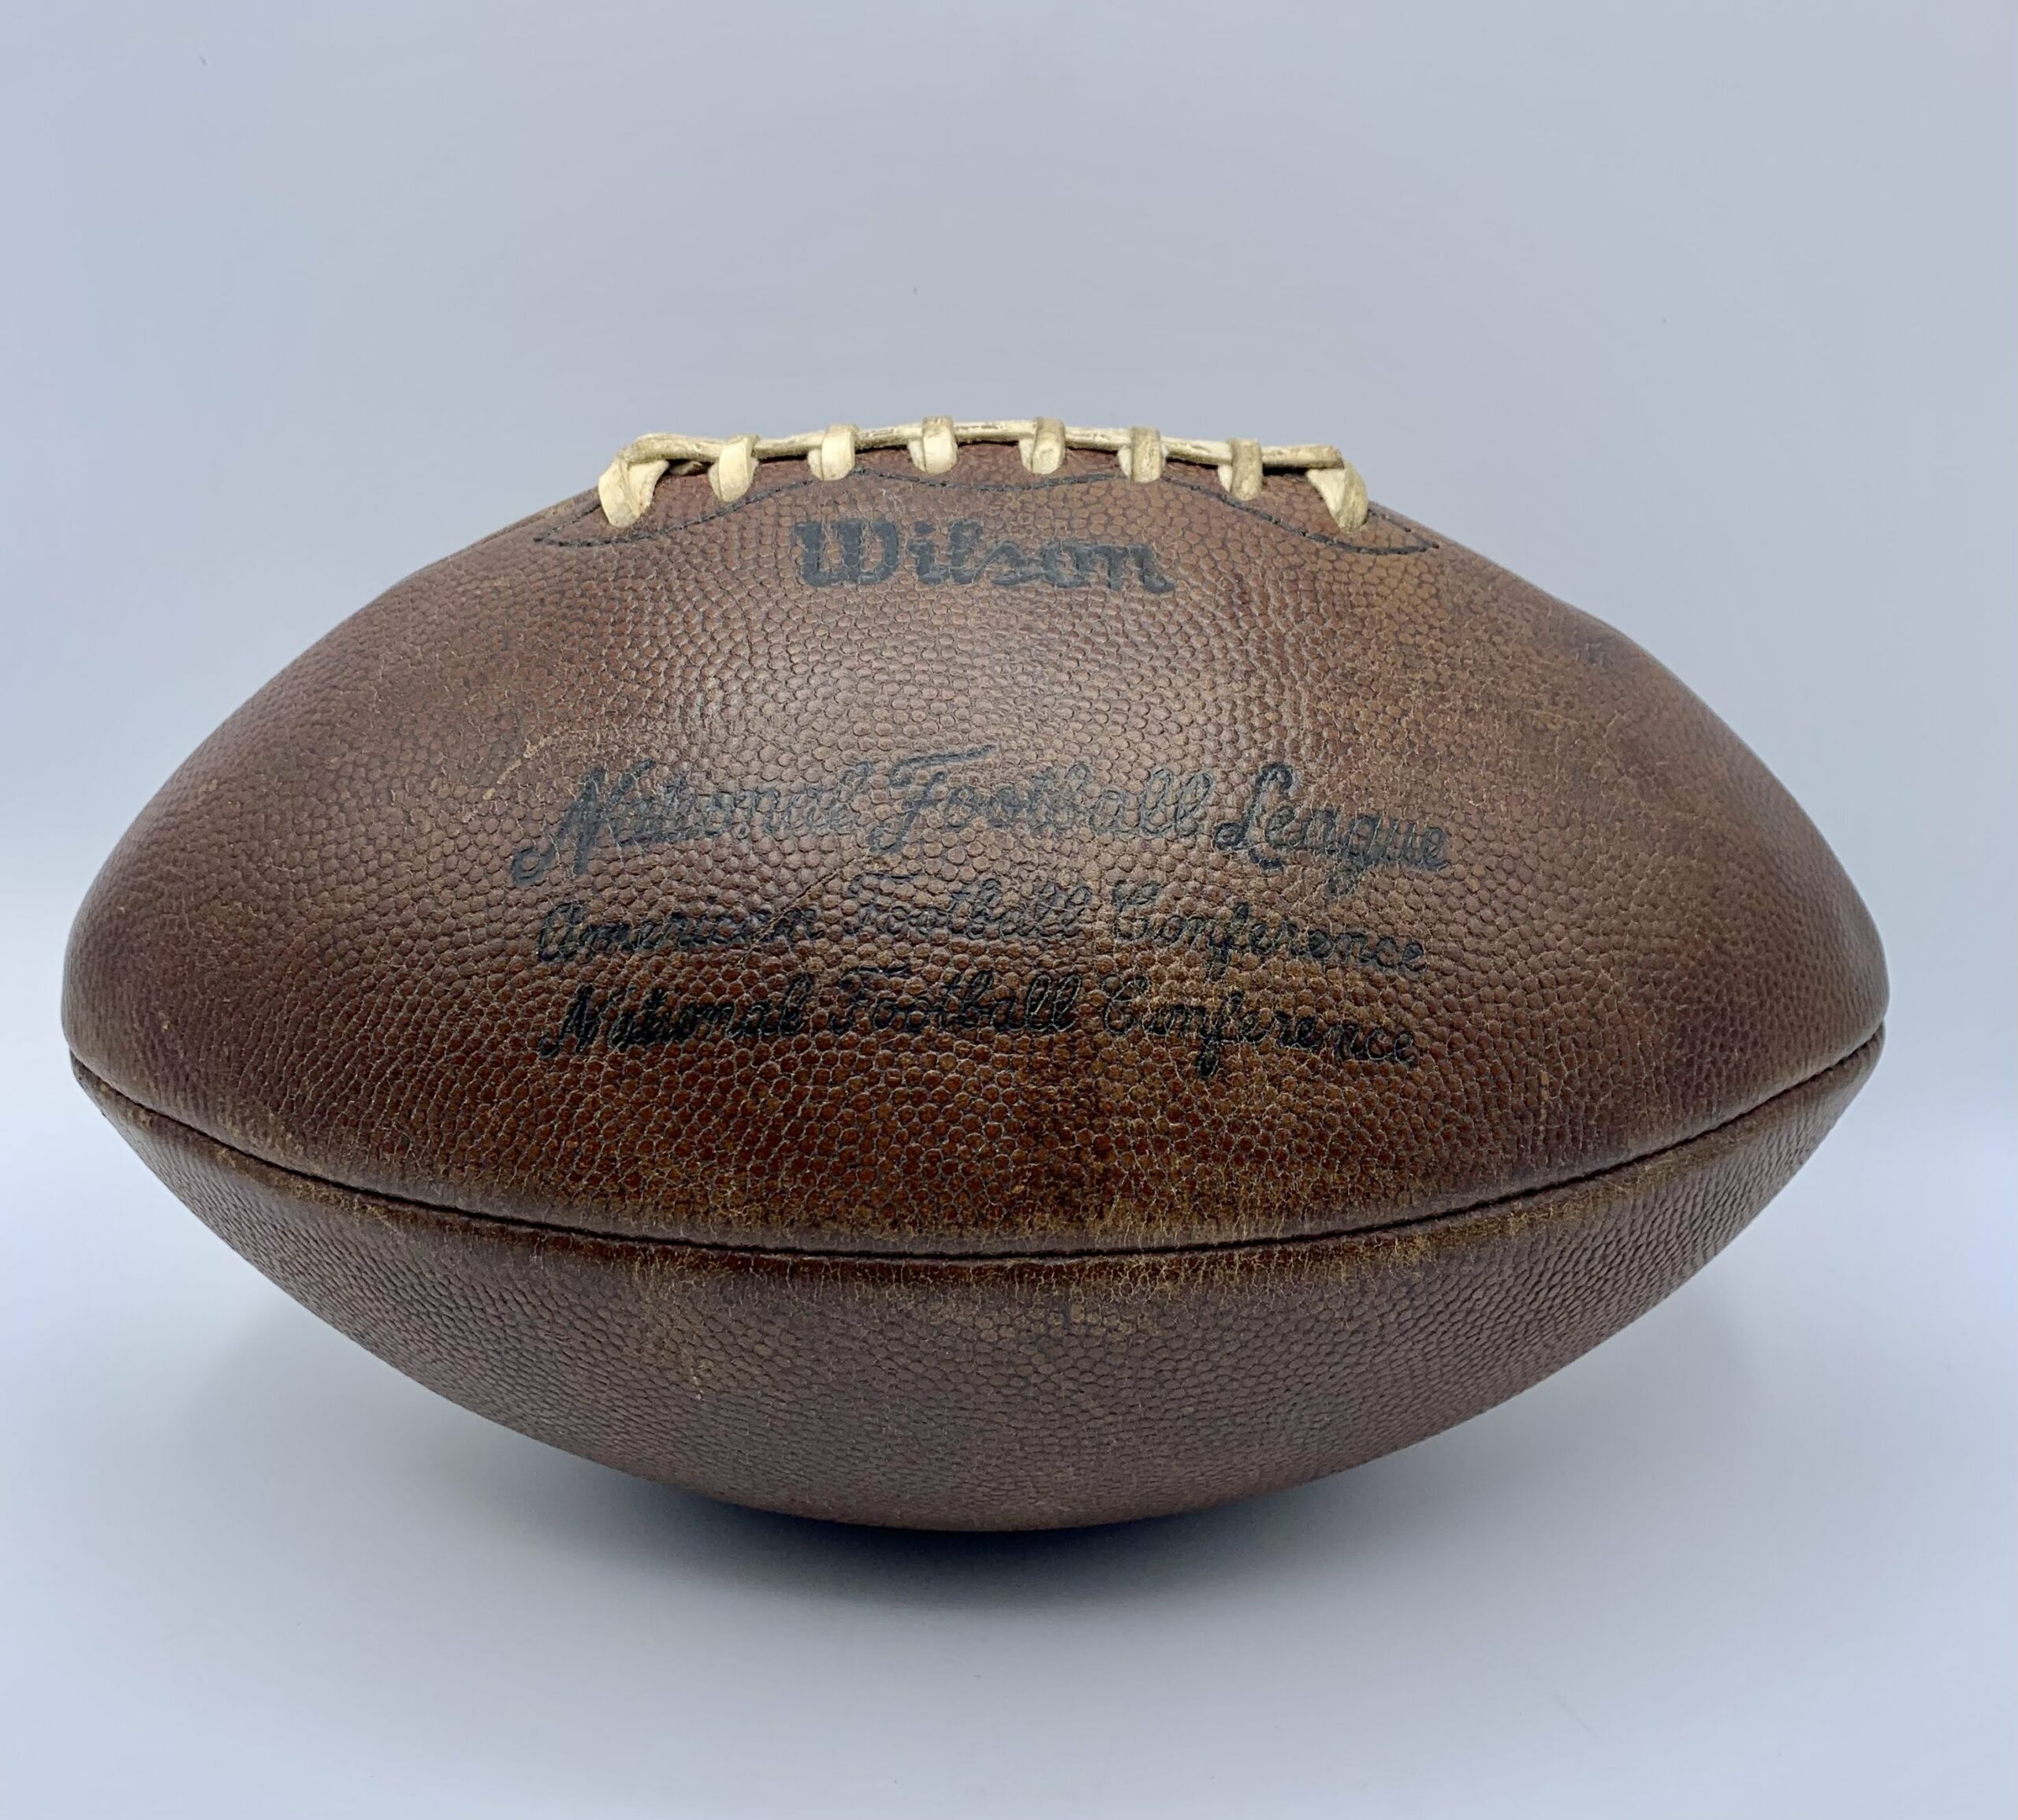 Wilson
National Football League
American Football Conference
National Football Conference